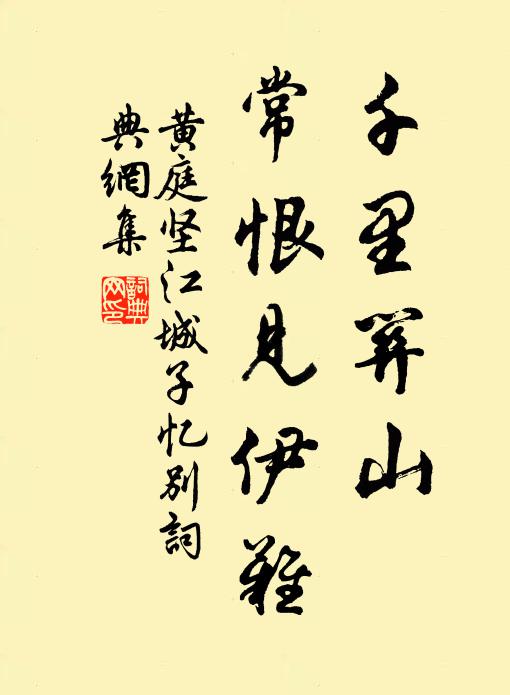 千里關山
常恨見伊難
黄庭坚江城子忆别詞
典網集
詞典
网印